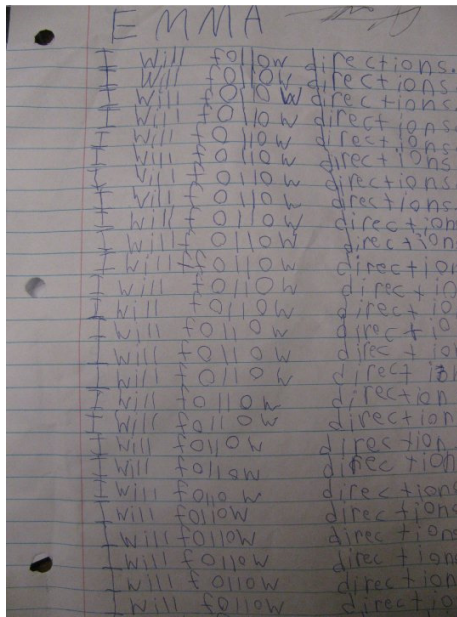 EMMA
I will follow directions.
I will follow directions.
I will follow directions.
I will follow directions.
I will follow directions.
I will follow directions.
I will follow directions.
I will follow directions.
I will follow direction
I will follow direction
I will follow direction
I will follow direction
I will follow directio
I will follow directio
I will follow direction
I will follow direction
I will follow direction
I will follow direction
I will follow direction
I will follow directions
I will follow directions
I will follow directions
I will follow directions
I will follow directions
I will follow directions
I will follow directio